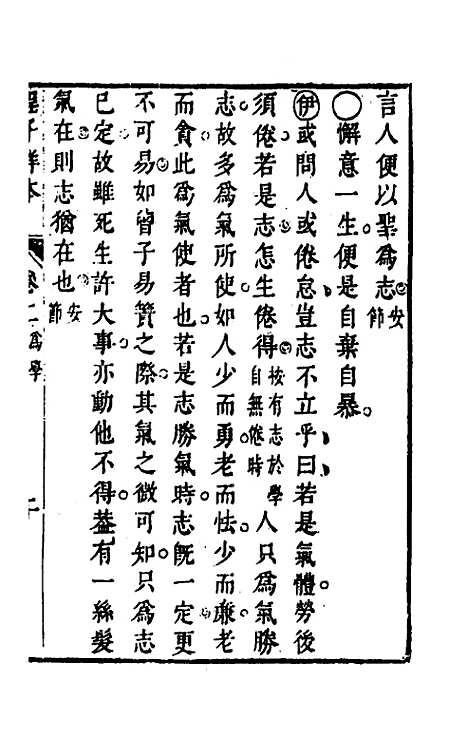 言人便以聖爲志安節
◯懈意一生便是自棄自暴
伊或問人或倦怠豈志不立乎曰若是氣體勞後
須倦若是志怎生倦得按有志於學自無倦時人只爲氣勝
志故多爲氣所使如人少而勇老而怯少而廉老
而貪此爲氣使者也若是志勝氣時志既一定更
不可易如曾子易簀之際其氣之微可知只爲志
已定故雖死生許大事亦動他不得葢有一絲髮
氣在則志猶在也安節
程子詳本 卷二 爲學